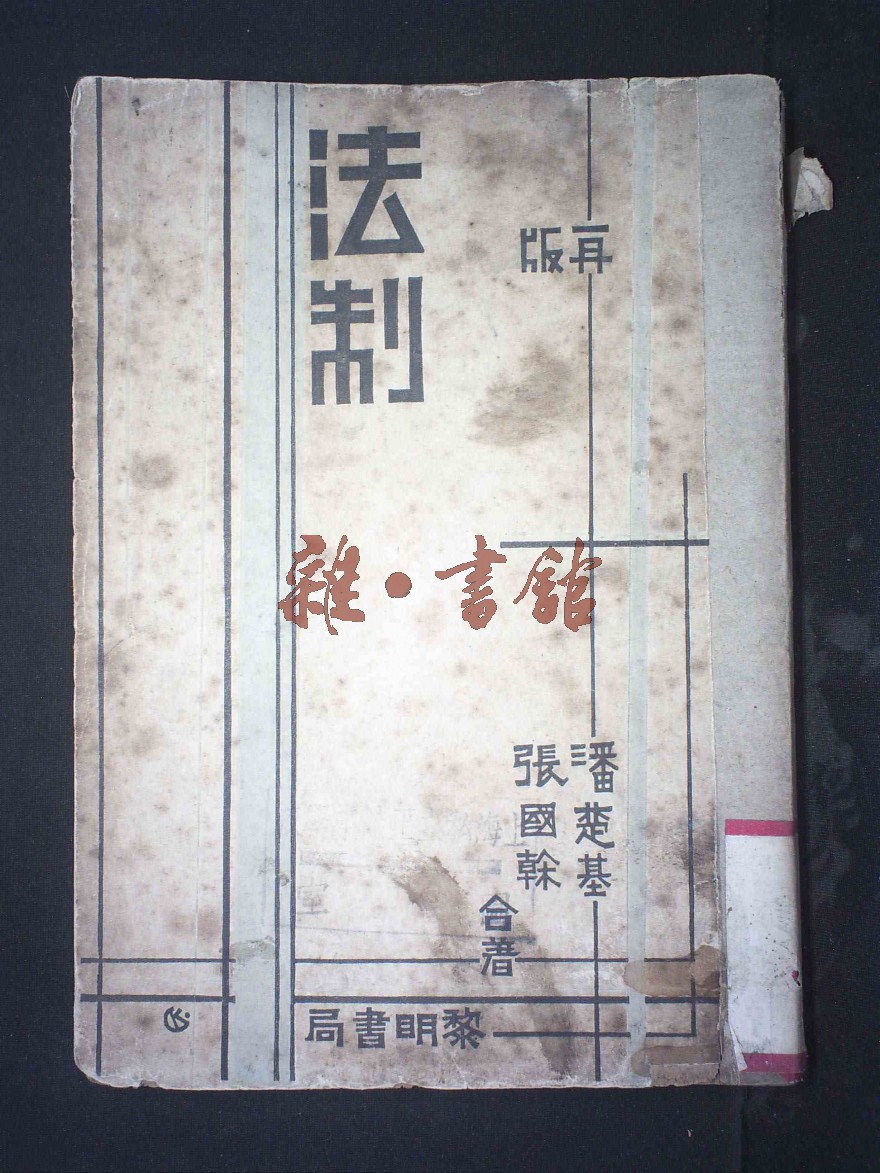 法制
再版
雜·書館
潘楚基
張國榦
合著
黎明書局